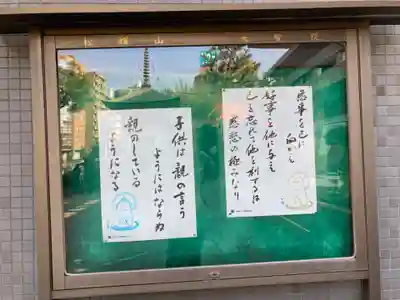 悪事を己に
向かえ
好事を他に与え
己を忘れて他を利するは
慈悲の極みなり
子供は親の言う
ようにはならぬ
親のしている
ようになる